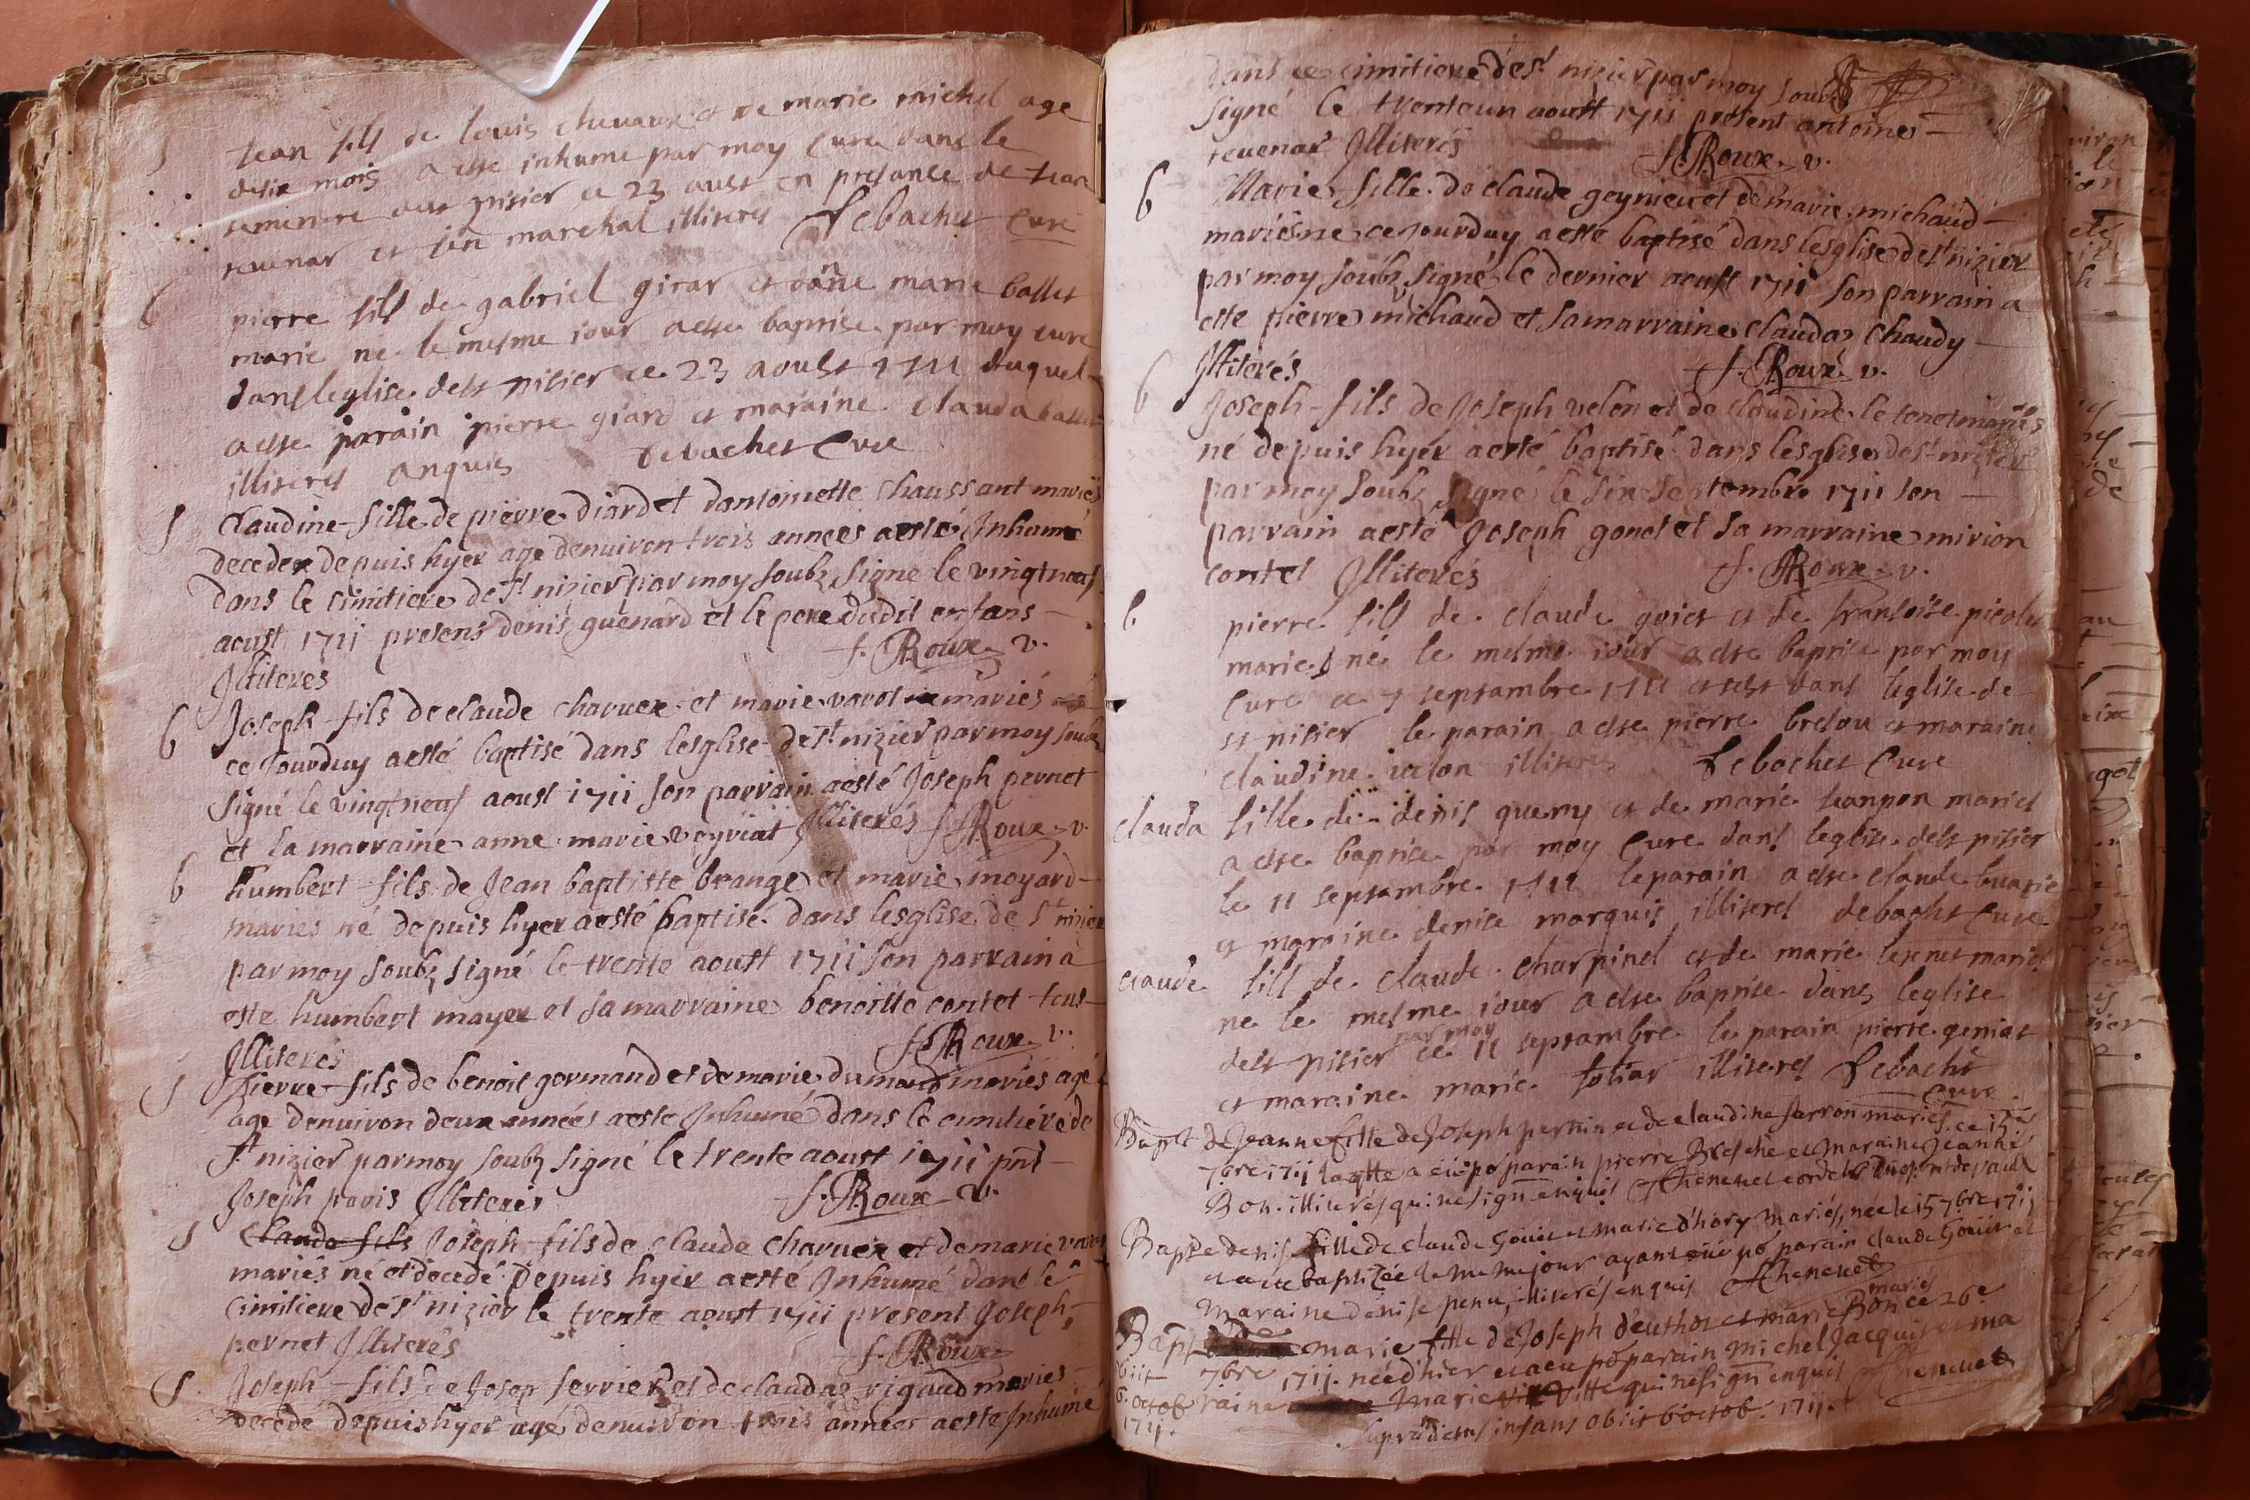 S
Jean fils de louis chuvaux et de marie michel age
desix mois a este inhume par moy Cure dans le
sementere dest nisier ce 23 aust en presance de Jean
teuenar et Jen marchal illiteres Debachet Cure
6
pierre fils de gabriel girar et marie ballet
marie ne le mesme iour a este baptise par moy cure
dans leglise dest nisier ce 23 aoust 1711 duquel
a este parain pierre girard et maraine Clauda ballet
illiteres anquis Debachet Cure
S Claudine fille de pierre diard et dantoinette chaussant mariés
decedee depuis hyer age denuiron trois annees aesté Inhumé
dans le cimitiere de St nizier par moy soubz signé le vingt neuf
aoust 1711 presens denis guenard et le pere dudit enfans
Illiterés f. Roux v.
6 Joseph fils de claude charuex et marie varot mariés né
ce jourduy aesté baptisé dans lesglise de St nizier par moy soubz
signé le vingt neuf aoust 1711 son parrain aesté Joseph pernet
et la marraine anne marie voyriat Illiterés f. Roux v.
6 humbert fils de Jean baptiste brange et marie moyard
mariés né depuis hyer aesté baptisé dans lesglise de St nizier
par moy soubz signé le trente aoust 1711 son parrain a
esté humbert mayex et sa marraine benoitte contet tous
Illiterés f. Roux v.
S Pierre fils de benoit gormand et de marie dumont mariés agé
age denuiron deux années aesté Inhumé dans le cimitiere de
St nizier par moy soubz signé le trente aoust 1711 pnt
Joseph paris Illiterés f. Roux v.
S Claude fils Joseph fils de claude charuex et de marie varot
mariés né et decedé depuis hyer aesté Inhumé dans le
cimitiere de St nizier le trente aoust 1711 present Joseph
pernet Illiterés f. Roux
S. Joseph fils de Josep serrier et de clauda rigaud mariés
decedé depuis hyer agé denuiron trois années aesté Inhumé
dans le cimitiere de St nizier par moy soubz
signé le trente un aoust 1711 present antoine
teuenar Illiterés f. Roux v.
6 Marie fille de claude goyrieu et de marie michaud
mariés ne ce jourduy aesté baptisé dans lesglise de St nizier
par moy soubz signé le dernier aoust 1711 son parrain a
esté pierre michaud et sa marraine clauda Chaudy
Illiterés f. Roux v.
6 Joseph fils de Joseph velon et de claudine le tenet mariés
né depuis hyer aesté baptisé dans lesglise de St nizier
par moy soubz signé le six septembre 1711 son
parrain aesté Joseph gonet et sa marraine mirion
contet Illiterés f. Roux v.
6. pierre fils de claude goiet et de fransoise picolet
maries né le mesme iour a este baptise par moy
Cure ce 7 septambre 1711 dans leglise de
st nisier le parain a este pierre brelou et maraine
claudine velon illiteres Debachet Cure
clauda fille de denis guemy et de marie Janpon maries
a este baptise par moy Cure dans leglise dest nisier
le 11 septambre 1711 le parain a este claude buarie
et maraine denise marquis illiteres debachet Cure
claude fils de claude charpinel et de marie maries
ne le mesme iour a este baptise dans leglise
par moy
dest nisier ce 11 septambre le parain pierre geniat
et maraine marie illiteres Debachet
Cure
Bapt de Jeanne fille de Joseph pernin et de claudine sarron mariés ce 15e
7bre 1711 laqlle a eu pō parain pierre Bresche et maraine Jeanne
Bon illiterés qui ne signt enquis Chenevet
Bapt de denise fille de claude Goüet et marie d'hory mariés, née le 15 7bre 1711
et a été baptizée le même jour ayant eû pō parain claude Goüet et
maraine denise penu, illiterés enquis Chenevet
mariés
Bapt de marie fille de Joseph deuthoz et marie Bon ce 26e
obiit 7bre 1711. née d'hier et a eu pō parain michel Jacquier et ma
6. octob raine marie vitte qui ne signt enquis Chenevet
1711. supradicta infans obiit 6 octob. 1711.